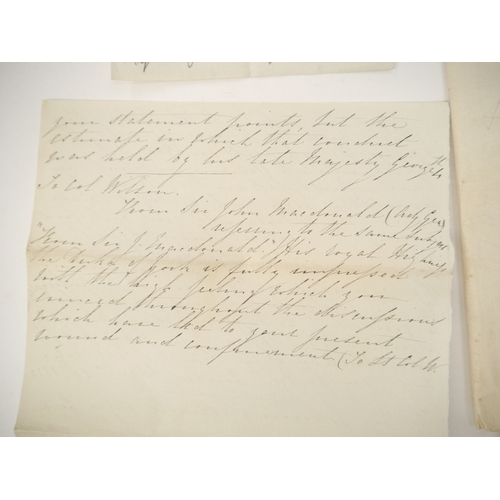 your statement points, but the
estimate in which that conduct
was held by his late Majesty George 4th
To Col Wilson.
From Sir John Macdonald (Adj Gen)
to the same subject
"From Sir J. Macdonald" His Royal Highness
the Duke of York is fully impressed
with the high feeling which you
evinced throughout the discussions
which have led to your present
wound and confinement (To Lt Col W.